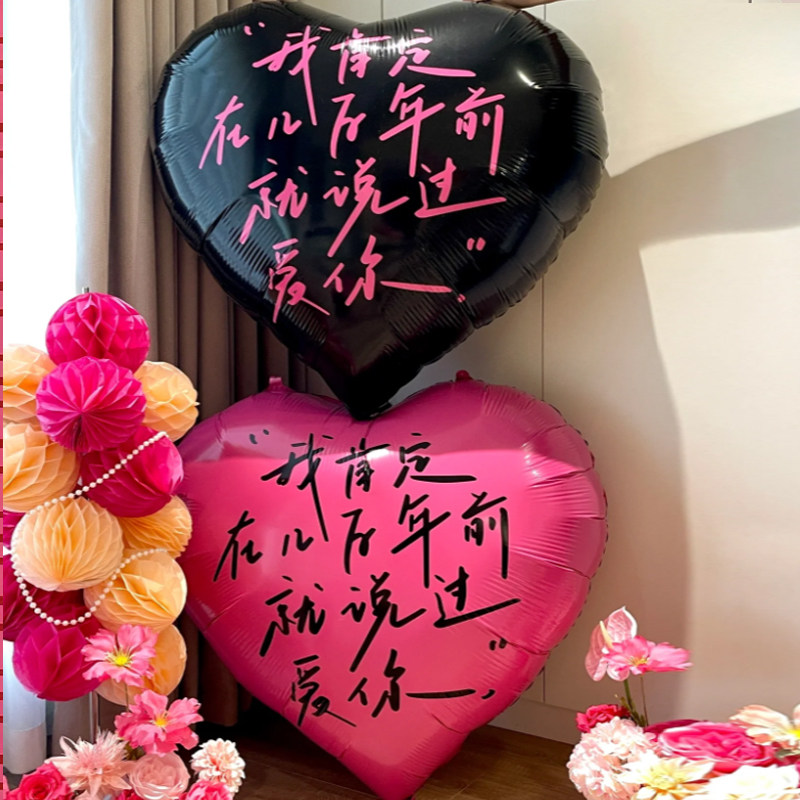 "我肯定
在几百年前
就说过
爱你"
"我肯定
在几百年前
就说过
爱你"